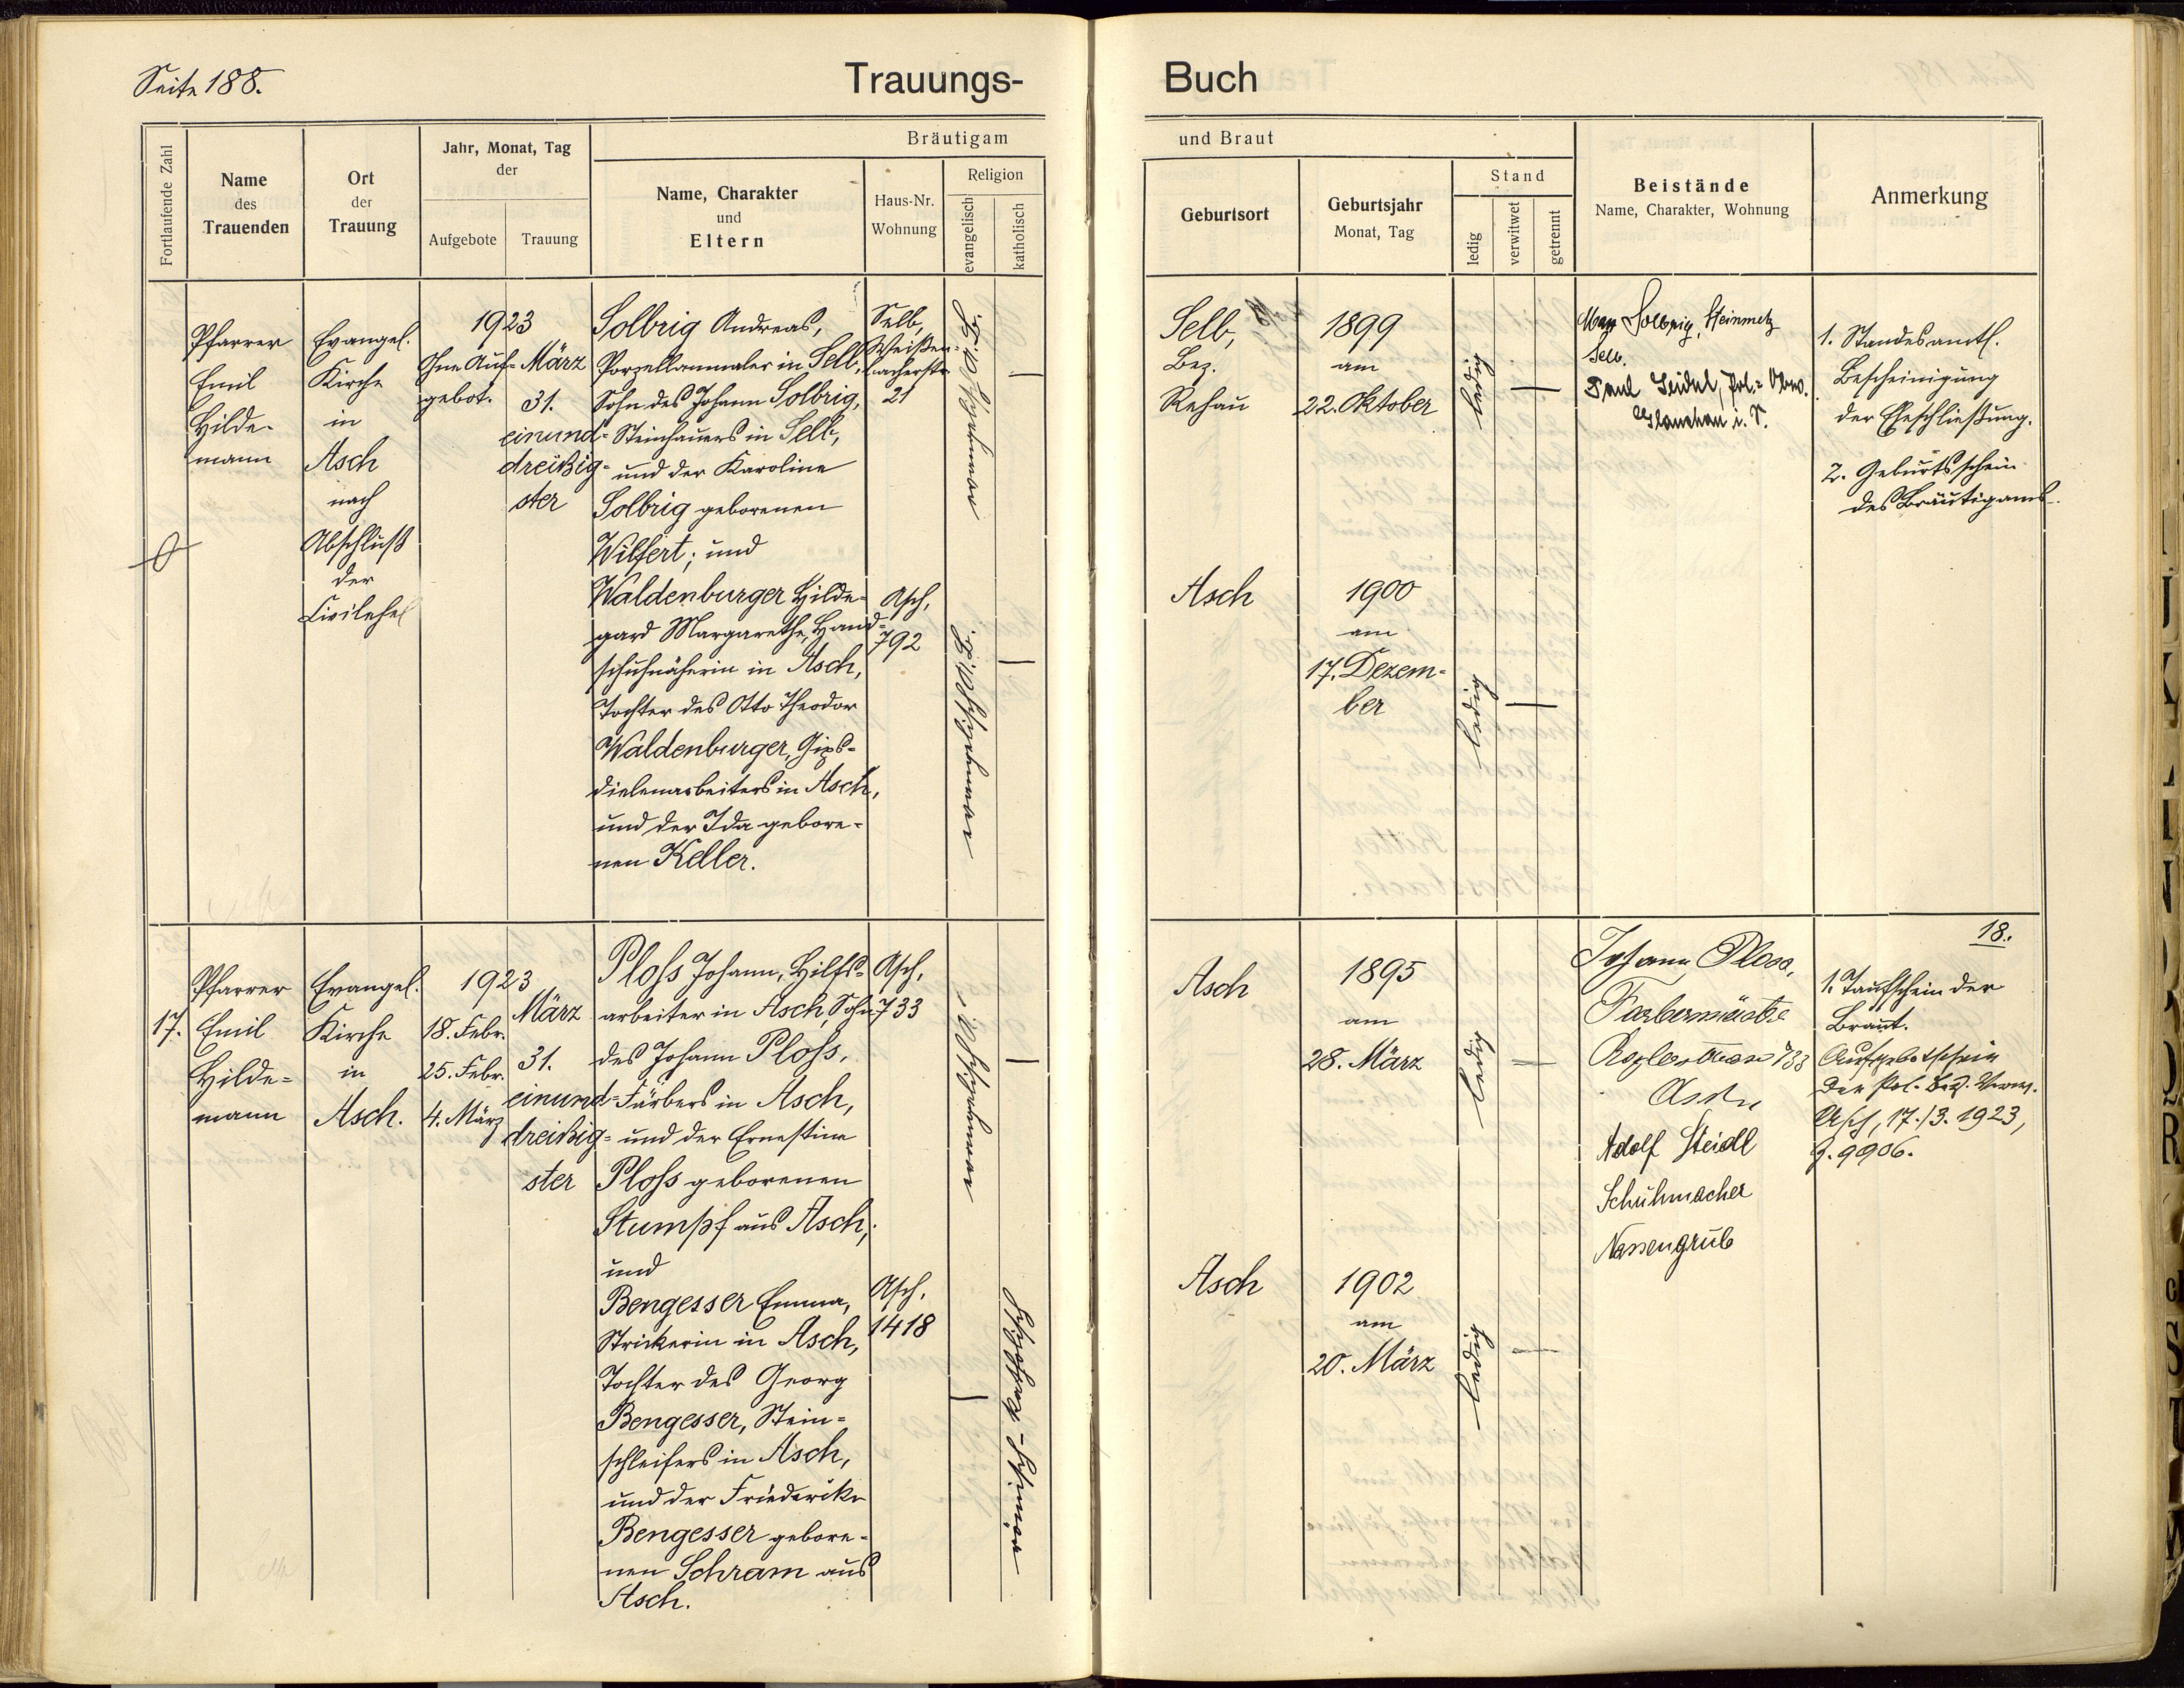 Seite 188.
Trauungs-
Buch
Fortlaufende Zahl
Name
des
Trauenden
Ort
der
Trauung
Jahr, Monat, Tag
der
Aufgebote
Trauung
Bräutigam
Name, Charakter
und
Eltern
Haus-Nr.
Wohnung
Religion
evangelisch
katholisch
und Braut
Geburtsort
Geburtsjahr
Monat, Tag
Stand
ledig
verwitwet
getrennt
Beistände
Name, Charakter, Wohnung
Anmerkung
Pfarrer
Emil
Hilde-
mann
Evangel.
Kirche
in
Asch
nach
Abschluß
der
Civilehe
1923
Ohne Auf-
gebot.
März
31.
einund-
dreißig-
ster
Solbrig Andreas,
Porzellanmaler in Selb,
Sohn des Johann Solbrig,
Steinhauers in Selb,
und der Karoline
Solbrig geborenen
Wilfert; und
Waldenburger Hilde-
gard Margarethe, Hand-
schuhnäherin in Asch,
Tochter des Otto Theodor
Waldenburger, Gips-
dielenarbeiters in Asch,
und der Ida gebore-
nen Keller.
Selb,
Weißen-
bacherstr.
21
Asch,
792
evangelisch A. B.
evangelisch A. B.
Selb,
Bez.
Rehau
1899
am
22. Oktober
ledig
Asch
1900
am
17. Dezem-
ber
ledig
Max Solbrig, Steinmetz
Selb.
Paul Seidel, Pol.-
Glauchau i. S.
1. Standesamtl.
Bescheinigung
der Eheschließung.
2. Geburtsschein
des Bräutigams.
17.
Pfarrer
Emil
Hilde-
mann
Evangel.
Kirche
in
Asch.
1923
18. Febr.
25. Febr.
4. März
März
31.
einund-
dreißig-
ster
Ploss Johann, Hilfs-
arbeiter in Asch, Sohn
des Johann Ploss,
Färbers in Asch,
und der Ernestine
Ploss geborenen
Stumpf aus Asch;
und
Bengesser Emma,
Strickerin in Asch,
Tochter des Georg
Bengesser, Stein-
schleifers in Asch,
und der Friederike
Bengesser gebore-
nen Schram aus
Asch.
Asch,
733
Asch,
1418
evangelisch A. B.
römisch-katholisch
Asch
1895
am
28. März
ledig
Asch
1902
am
20. März
ledig
Johann Ploss,
Färbermeister
733
Asch
Adolf Steidl
Schuhmacher
Nassengrub
18.
1. Taufschein der
Braut.
Aufgebotschein
der Pol. Bez. Verw.
Asch, 17./3. 1923,
Z. 9906.